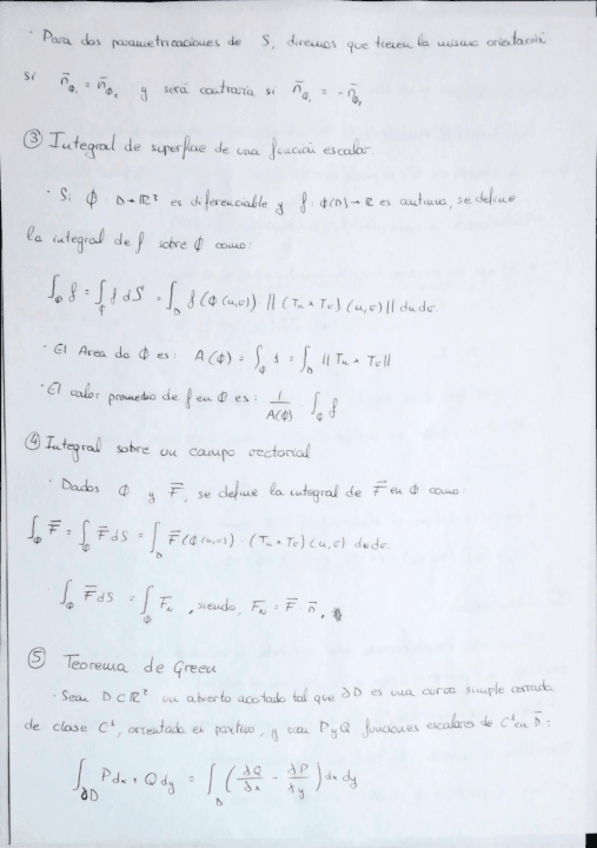 · Para dos parametrizaciones de S, diremos que tienen la misma orientación
si n̄_Φ₁ = n̄_Φ₂ y será contraria si n̄_Φ₁ = - n̄_Φ₂
③ Integral de superficie de una función escalar.
· Si Φ: D→ℝ³ es diferenciable y f: Φ(D)→ℝ es continua, se define
la integral de f sobre Φ como:
∫_Φ f = ∫_Φ f dS = ∫_D f(Φ(u,v)) ||(Tu × Tv)(u,v)|| du dv.
· El Area de Φ es: A(Φ) = ∫_Φ 1 = ∫_D ||Tu × Tv||
· El valor promedio de f en Φ es: 1/A(Φ) · ∫_Φ f
④ Integral sobre un campo vectorial
· Dados Φ y F̄, se define la integral de F̄ en Φ como:
∫_Φ F̄ = ∫_Φ F̄ dS = ∫_D F̄(Φ(u,v)) · (Tu × Tv)(u,v) du dv.
∫_Φ F̄ dS = ∫_Φ F_N , siendo, F_N = F̄ n̄.
⑤ Teorema de Green
· Sean D⊂ℝ² un abierto acotado tal que ∂D es una curva simple cerrada
de clase C¹, orientada en positivo, y sean P y Q funciones escalares de C¹ en D̄:
∫_∂D P dx + Q dy = ∫_D (∂Q/∂x - ∂P/∂y) dx dy